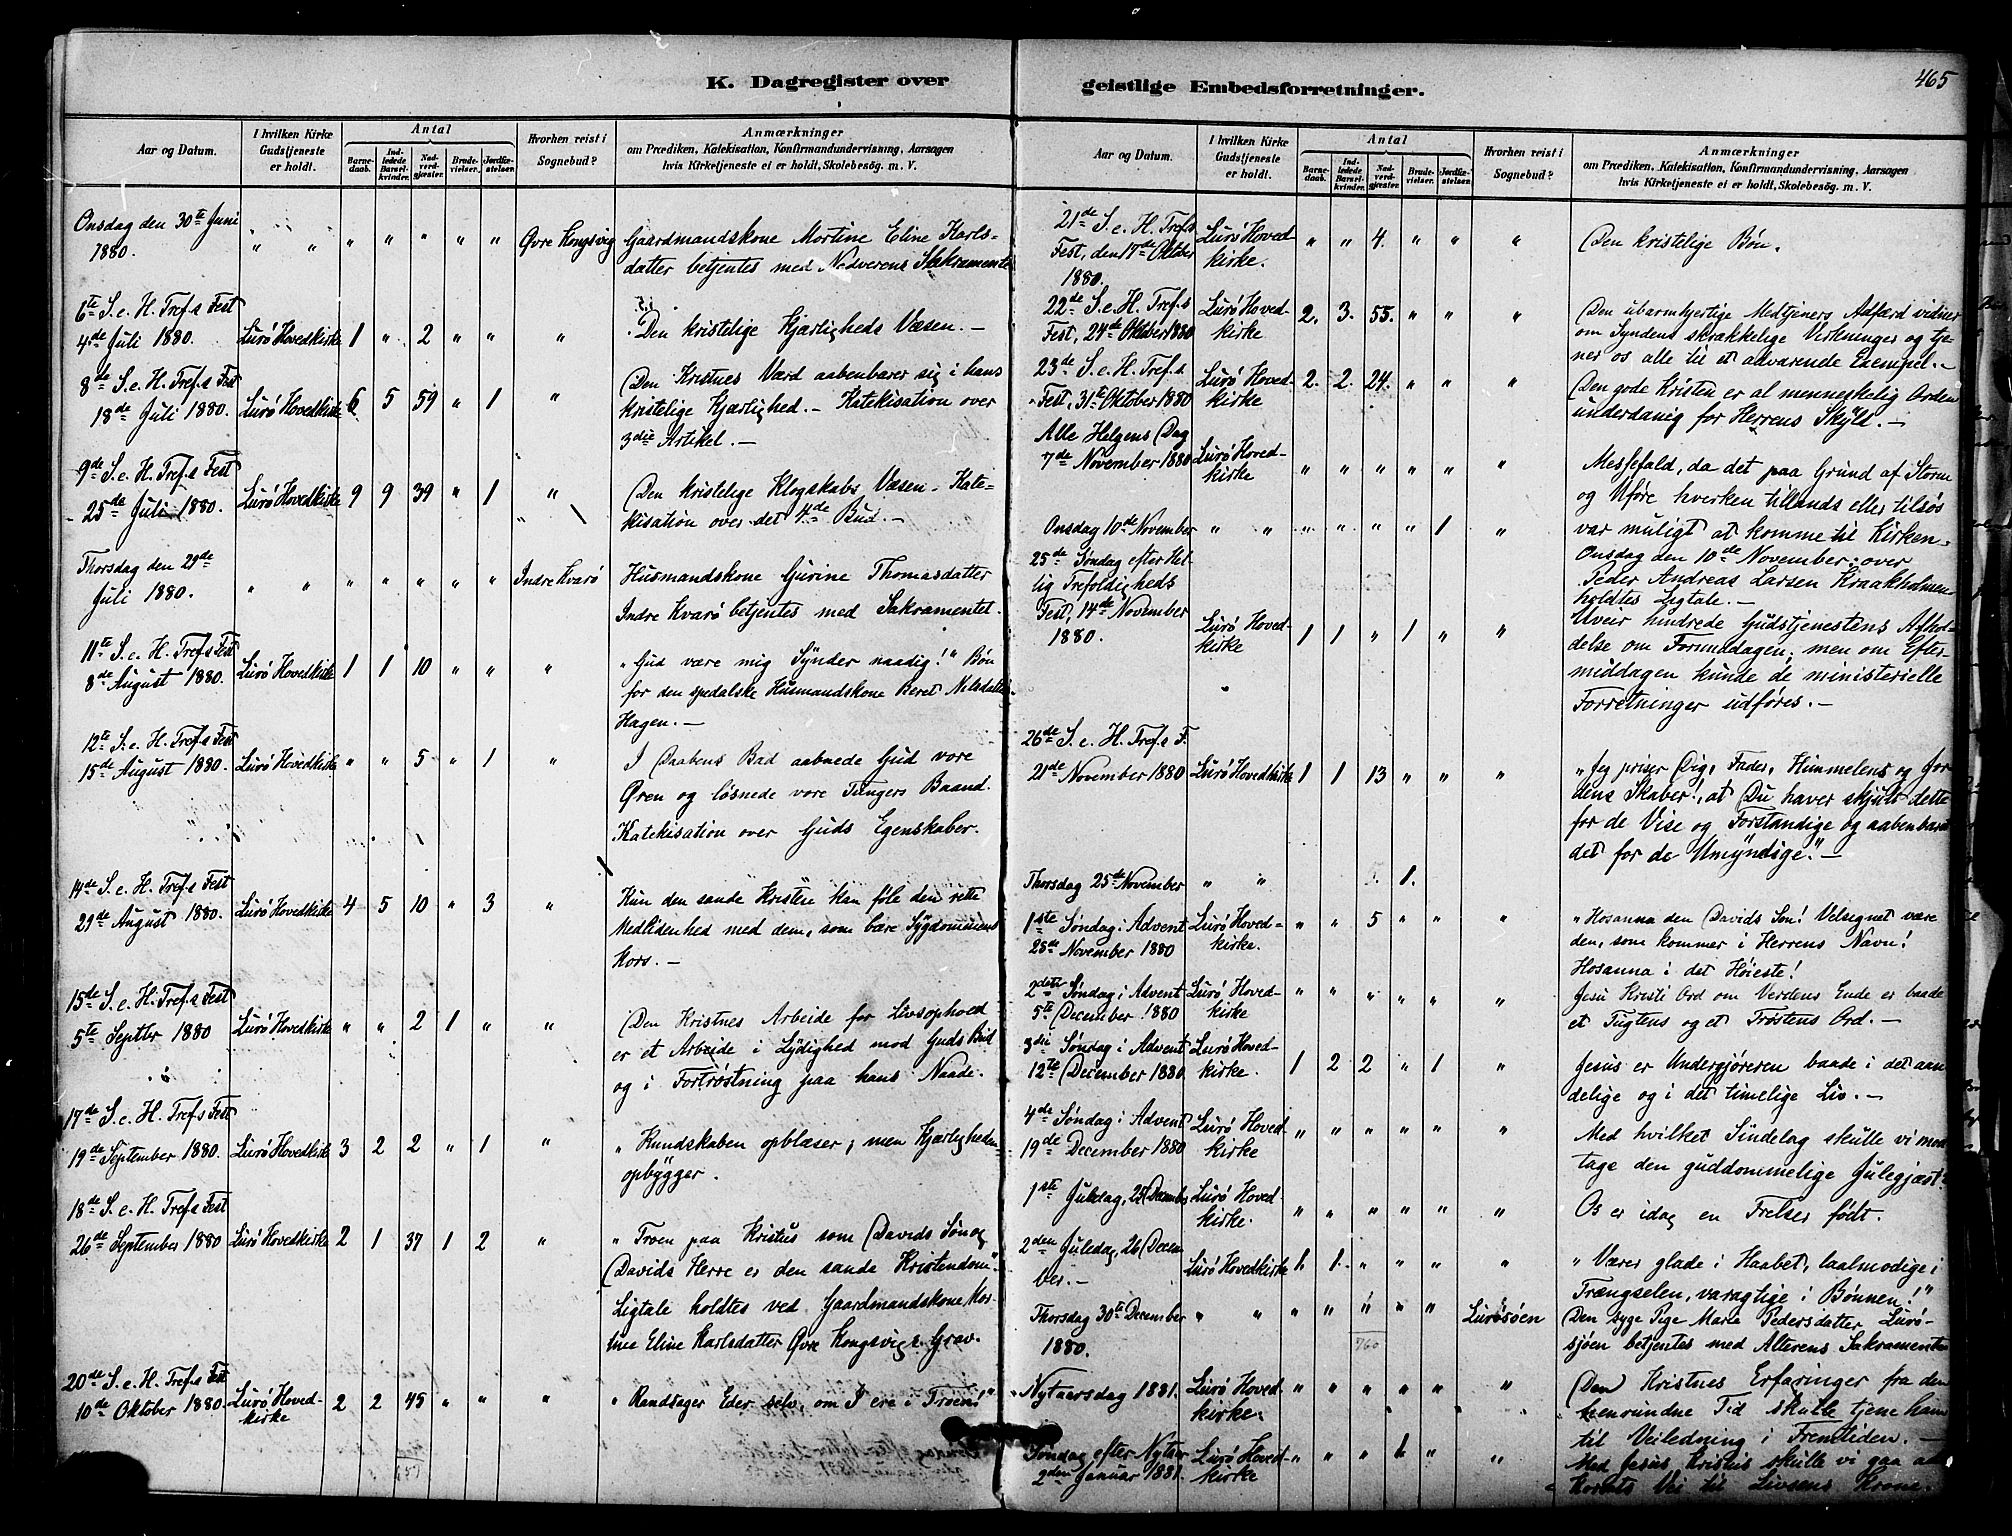 465
K. Dagregister over
geistlige Embedsforretninger.
Aar og Datum.
I hvilken Kirke Gudstjeneste er holdt.
Antal
Barnedaab.
Indledede Barselkvinder.
Nadverdgjæster.
Brudevielser.
Jordfæstelser.
Hvorhen reist i Sognebud?
Anmærkninger
om Prædiken, Katekisation, Konfirmandundervisning, Aarsagen
hvis Kirketjeneste ei er holdt, Skolebesög. m. V.
Onsdag den 30te Juni
1880. " " " " " " " Øvre Kongsvig Gaardmandskone Mortine Eline Karls-
datter betjentes med Nadverens Sakramente
6te S. e. H. Tref.s Fest
4de Juli 1880. Lurø Hovedkirke 1 " 2 " " " Den kristelige Kjærligheds Væsen. —
8de S. e. H. Tref.s Fest
18de Juli 1880. Lurø Hovedkirke 6 5 59 " 1 " Den Kristnes Værd aabenbarer sig i hans
kristelige Kjærlighed. — Katekisation over
3die Artikel. —
9de S. e. H. Tref.s Fest
25de Juli 1880. Lurø Hovedkirke 9 9 39 " 1 " Den kristelige Klogskabs Væsen. Kate-
kisation over det 4de Bud. —
Thorsdag den 29de
Juli 1880. " " " " " " " Indre Kvarø Husmandskone Gurine Thomasdatter
Indre Kvarø betjentes med Sakramentet.
11te S. e. H. Tref.s Fest
8de August 1880. Lurø Hovedkirke 1 1 10 " " " "Gud være mig Synder naadig!" Bøn
for den spedalske Husmandskone Beret Nilsdatter
Hagen. —
12te S. e. H. Tref.s Fest
15de August 1880. Lurø Hovedkirke " " 5 " 1 " I Daabens Bad aabnede Gud vore
Øren og løsnede vore Tungers Baand.
Katekisation over Guds Egenskaber.
14de S. e. H. Tref.s Fest
29de August 1880. Lurø Hovedkirke 4 5 10 " 3 " Kun den sande Kristen kan føle den rette
Medlidenhed med dem, som bære Sygdommens
Kors. —
15de S. e. H. Tref.s Fest
5te Septbr 1880 Lurø Hovedkirke " " 2 1 " " Den Kristnes Arbeide for Livsophold
er et Arbeide i Lydighed mod Guds Bud
og i Fortrøstning paa hans Naade.
17de S. e. H. Tref.s Fest
19de September 1880. Lurø Hovedkirke 3 2 2 " 1 " "Kundskaben opblæser, men Kjærligheden
opbygger.
18de S. e. H. Tref.s Fest
26de September 1880 Lurø Hovedkirke 2 1 37 1 2 " "Troen paa Kristus som Davids Søn og
Davids Herre er den sande Kristendom".
Ligtale holdtes ved Gaardmandskone Mor-
tine Eline Karlsdatter Øvre Kongsvigs Grav.
20de S. e. H. Tref.s Fest
10de Oktober 1880 Lurø Hoved-
kirke 2 2 45 " " " "Randsager Eder selv, om I ere i Troen!"
Aar og Datum.
I hvilken Kirke Gudstjeneste er holdt.
Antal
Barnedaab.
Indledede Barselkvinder.
Nadverdgjæster.
Brudevielser.
Jordfæstelser.
Hvorhen reist i Sognebud?
Anmærkninger
om Prædiken, Katekisation, Konfirmandundervisning, Aarsagen
hvis Kirketjeneste ei er holdt, Skolebesög. m. V.
21de S. e. H. Tref.s
Fest, den 17de Oktober
1880. Lurø Hoved-
kirke. " " 4. " " " Den kristelige Bøn.
22de S. e. H. Tref.s
Fest, 24de Oktober 1880 Lurø Hoved-
kirke 2. 3. 55. " " " Den ubarmhjertige Medtjeners Adfærd vidner
om Syndens skrækkelige Virkninger og tje-
ner os alle til et advarende Exempel. —
23de S. e. H. Tref.s
Fest, 31te Oktober 1880 Lurø Hoved-
kirke 2. 2. 24. " " " Den gode Kristen er al menneskelig Orden
underdanig for Herrens Skyld. —
Alle Helgens Dag
7de November 1880 Lurø Hoved-
kirke " " " " " " Messefald, da det paa Grund af Storm
og Uføre hverken tillands eller tilsøs
var muligt at komme til Kirken.
Onsdag 10de November " " " " " " 1 Onsdag den 10de November over
Peder Andreas Larsen Kraakholmen
holdtes Ligtale. —
25de Søndag efter Hel-
lig Trefoldigheds
Fest, 14de November
1880. Lurø Hoved-
kirke 1 1 " 1 " " Uveir hindrede Gudstjenestens Afhol-
delse om Formiddagen; men om Efter-
middagen kunde de ministerielle
Forretninger udføres. —
26de S. e. H. Tref.s F.
21de November 1880 Lurø Hovedkirke 1 1 13 " " " "Jeg priser Dig, Fader, Himmelens og Jor-
dens Skaber!, at Du haver skjult dette
for de Vise og Forstandige og aabenbaret
det for de Umyndige." —
Thorsdag 25de November " " 1.
1ste Søndag i Advent
28de November 1880 Lurø Hoved-
kirke " " 5 " " " "Hosanna den Davids Søn! Velsignet være
den, som kommer i Herrens Navn!
Hosanna i det Høieste!
2den Søndag i Advent
5te December 1880 Lurø Hoved-
kirke " " " " " " Jesu Kristi Ord om Verdens Ende er baade
et Tugtens og et Trøstens Ord. —
3die Søndag i Advent
12te December 1880. Lurø Hoved-
kirke. 1 2 2 " 1 " Jesus er Undergjøreren baade i det aan-
delige og i det timelige Liv. —
4de Søndag i Advent
19de December 1880 Lurø Hoved-
kirke " " " " " " Med hvilket Sindelag skulle vi mod-
tage den guddommelige Julegjæst?
1ste Juledag, 25 December Lurø Hoved
kirke. " " " " " " Os er idag en Frelser født.
2den Juledag, 26 Decem-
ber. — Lurø Hovedkirke 1. 1. " " " " "Værer glade i Haabet, taalmodige i
Trængselen, varagtige i Bønnen!"
Thorsdag 30te December
1880. " " " " " " Lurøsøen Den syge Pige Maria Pedersdatter Lurø-
sjøen betjentes med Alterens Sakramente
760
Nytaarsdag 1881. Lurø Hoved-
kirke. " " " " " " Den Kristnes Erfaringer fra den
henrundne Tid skulle tjene ham
til Veiledning i Fremtiden. —
Søndag efter Nytaar
2den Januar 1881. Lurø Hoved-
kirke " " " 1 " " Med Jesus Kristus skulle vi gaa ad
Korsets Vei til Livsens Krone.